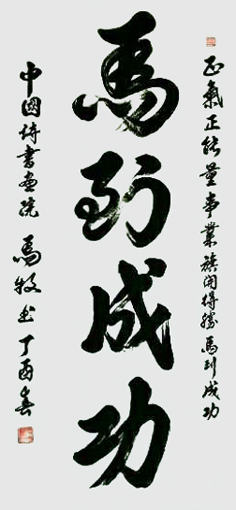 正氣正能量事業旗開得勝馬到成功
馬到成功
中國詩書畫院 馬牧書 丁酉春